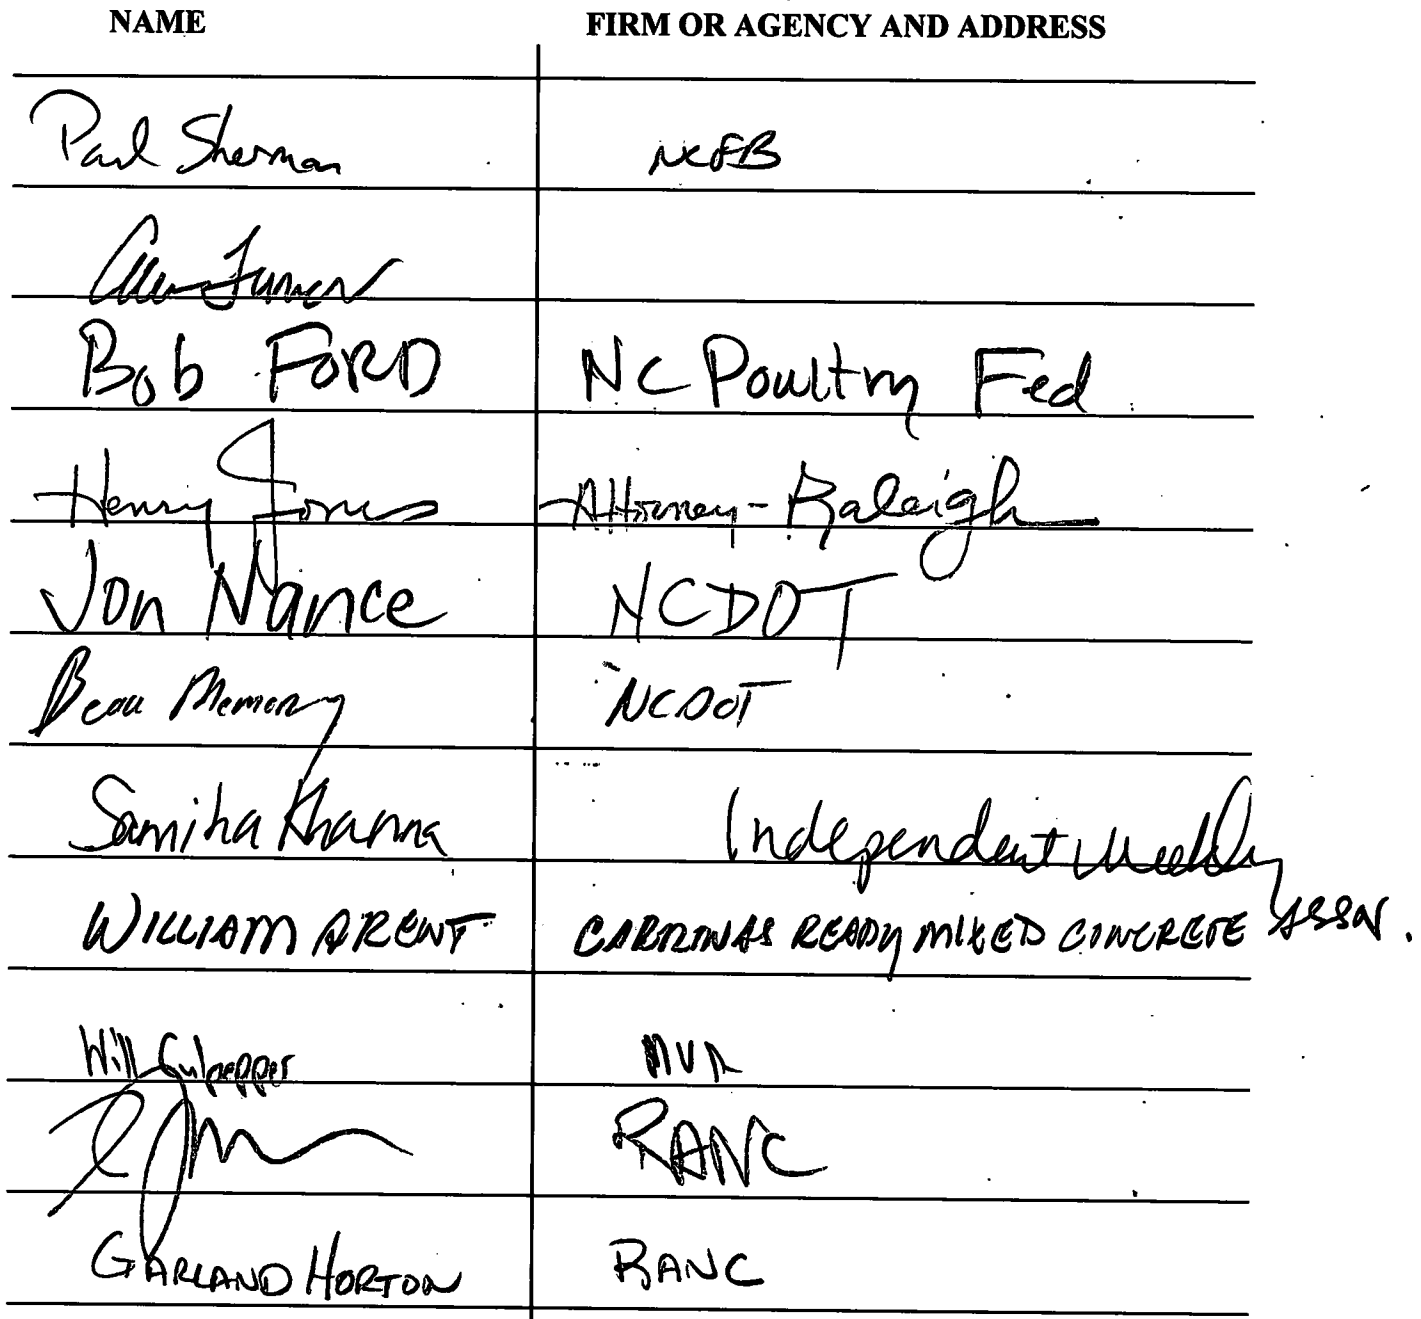 NAME FIRM OR AGENCY AND ADDRESS
Paul Sherman NCFB
Bob FORD NC Poultry Fed
Henry Jones Attorney - Raleigh
Jon Nance NCDOT
Beau Memory NCDOT
Samiha Khanna Independent Weekly
WILLIAM ARENT CAROLINAS READY MIXED CONCRETE ASSN.
Will Culpepper
RANC
GARLAND HORTON RANC